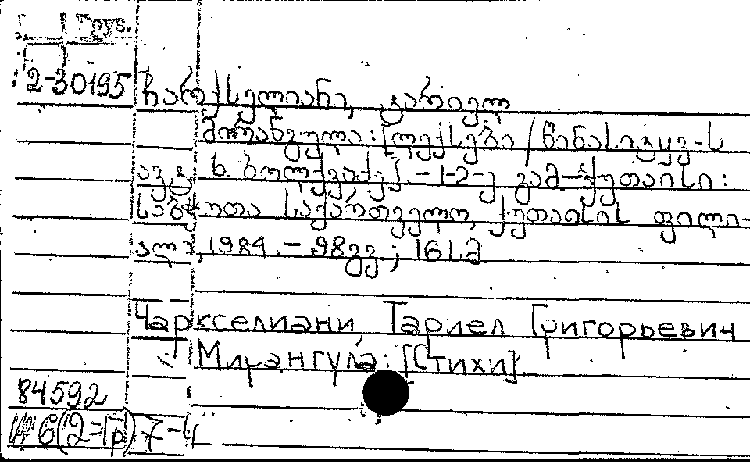 Груз.
2-30195 ჩარქსელიანი, ტარიელ
მირანგულა: [ლექსები / წინასიტყვ-ს
ავტ. ხ. ბოლქვაძე]. -1-2-ე გამ-ქუთაისი:
საბჭოთა საქართველო, ქუთაისის ფილი-
ალი, 1984. - 98გვ; 16ს.მ
Чаркселиани Тариел Григорьевич
Мирангула: [Стихи]
84592
С(2=Гр)7-4